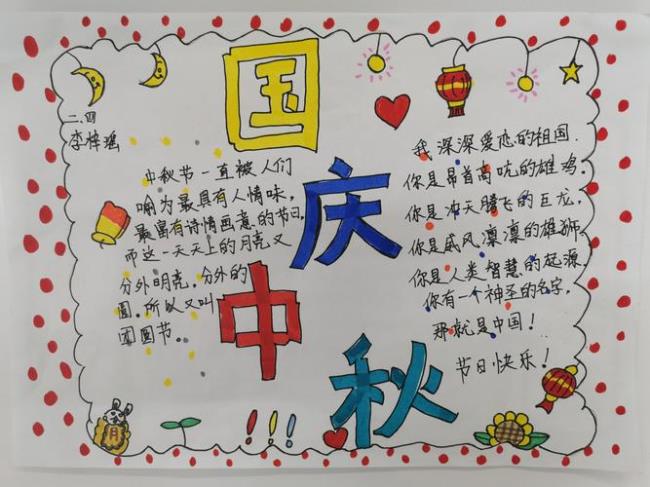 国
庆
中
秋
二.四
李梓瑶
中秋节一直被人们
喻为最具有人情味,
最富有诗情画意的节日。
而这一天天上的月亮又
分外明亮,分外的
圆。所以又叫
团圆节。
我深深爱恋的祖国.
你是昂首高吭的雄鸡.
你是冲天腾飞的巨龙,
你是威风凛凛的雄狮
你是人类智慧的起源.
你有一个神圣的名字,
那就是中国!
节日快乐!
月
!!!